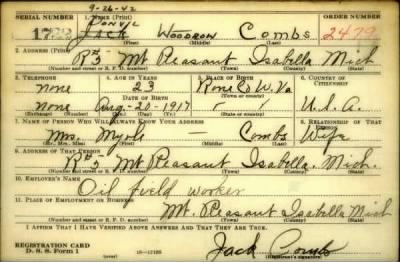 9-26-42
SERIAL NUMBER 1. NAME (Print) ORDER NUMBER
Jack Woodrow Combs 2479
(First) (Middle) (Last)
2. ADDRESS (Print)
R#5 Mt Pleasant Isabella Mich
(Number and street or R. F. D. number) (Town) (County) (State)
3. TELEPHONE 4. AGE IN YEARS 5. PLACE OF BIRTH 6. COUNTRY OF CITIZENSHIP
none 23 Rone Co W. Va
DATE OF BIRTH (Town or county)
none Aug-20-1917 U.S.A.
7. NAME OF PERSON WHO WILL ALWAYS KNOW YOUR ADDRESS 8. RELATIONSHIP OF THAT PERSON
Mrs. Myrle — Combs Wife
(Mr., Mrs., Miss) (First) (Middle) (Last)
9. ADDRESS OF THAT PERSON
R#5 Mt Pleasant Isabella. Mich.
(Number and street or R. F. D. number) (Town) (County) (State)
10. EMPLOYER'S NAME
Oil field worker
11. PLACE OF EMPLOYMENT OR BUSINESS
Mt. Pleasant Isabella Mich
(Number and street or R. F. D. number) (Town) (County) (State)
I AFFIRM THAT I HAVE VERIFIED ABOVE ANSWERS AND THAT THEY ARE TRUE.
REGISTRATION CARD
D. S. S. Form 1 Jack Combs
(over) (Registrant's signature)